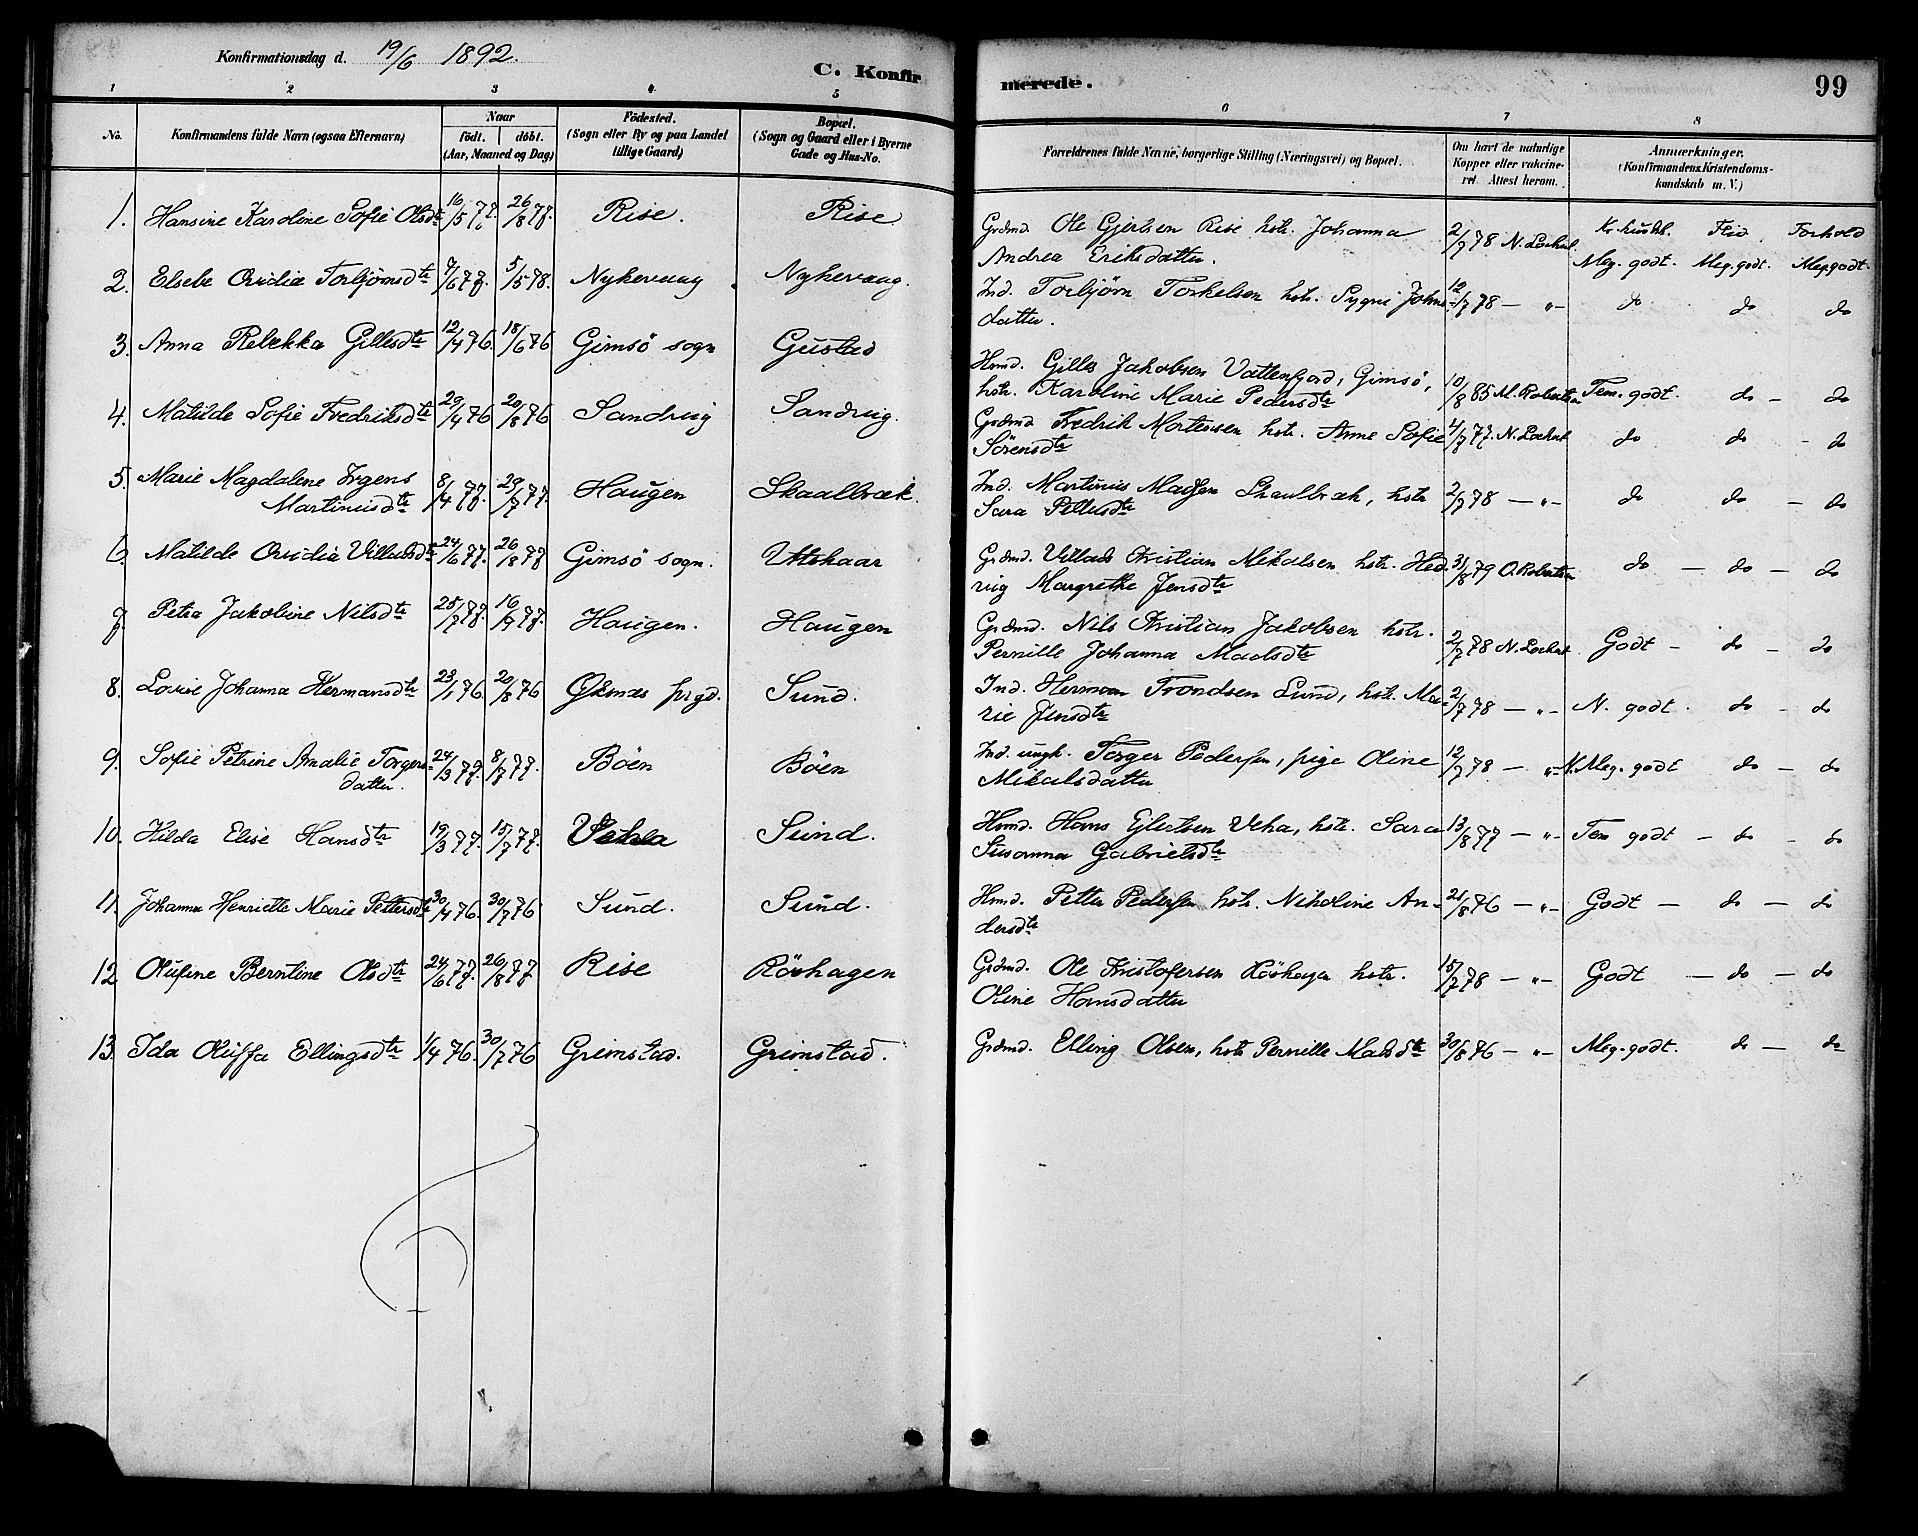 Konfirmationsdag d. 19/6 1892.
C. Konfir
merede.
99
1 2 3 4 5 6 7 8
No.
Konfirmandens fulde Navn (ogsaa Efternavn)
Naar
födt. döbt.
(Aar, Maaned og Dag)
Födested.
(Sogn eller By og paa Landet
tillige Gaard)
Bopæl.
(Sogn og Gaard eller i Byerne
Gade og Hus-No.
Forældrenes fulde Navne, borgerlige Stilling (Næringsvei) og Bopæl.
Om havt de naturlige
Kopper eller vakcine-
ret. Attest herom.
Anmærkninger.
(Konfirmandens Kristendoms-
kundskab m. V.)
1. Hansine Karoline Sofie Olsdtr 16/5 77. 26/8 77. Rise. Rise
Grdmd. Ole Gjertsen Rise hstr. Johanna 2/7 78 N. Lockert Kr. kundsk. Flid Forhold
Andrea Eriksdatter. Meg. godt. Meg. godt. Meg. godt.
2. Elsebe Ovidia Torbjörnsdtr 7/6 77. 5/5 78. Nykevaag Nykevaag.
Ind. Torbjörn Torkelsen hstr. Sygni Johns 12/7 78 — " — do do do
datter.
3. Anna Rebekka Gillesdtr 12/4 76. 18/6 76 Gimsö sogn Gustad
Hmd. Gilles Jakobsen Vattenfjord, Gimsö,
hstr. Karoline Marie Pedersdtr 10/8 85 M. Robertsen Tem. godt. do — do
4. Matilde Sofie Fredriksdtr 29/4 76 20/8 76 Sandvig Sandvig.
Grdmd. Fredrik Mortensen hstr. Anne Sofie 4/7 77. N. Lockert do do - do
Sörensdtr
5. Marie Magdalene Irgens
Martinusdtr 8/4 77. 29/7 77. Haugen Skaalbræk.
Ind. Martinus Madsen Skaalbræk, hstr 2/7 78 — " — do do — do
Sara Pettersdtr
6. Matilde Ovidia Villadsdtr 24/6 77. 26/8 77 Gimsö sogn. Uttskaar
Grdmd. Villads Kristian Mikalsen hstr. Hed- 31/8 79 O. Robertsen do — do — do
vig Margrethe Jensdtr
7. Petra Jakobine Nilsdtr 25/7 77. 16/9 77. Haugen. Haugen
Grdmd. Nils Kristian Jakobsen hstr.
Pernille Johanna Madsdtr 2/7 78 N. Lockert. Godt — do — do
8. Lovise Johanna Hermansdtr 23/1 76. 20/8 76 Öksnes prgd. Sund.
Ind. Herman Trondsen Sund, hstr. Ma- 2/7 78 — " — N. godt. do - do
rie Jensdtr
9. Sofie Petrine Amalie Torgers-
datter. 24/3 77. 8/7 77. Böen Böen
Ind. ungk. Torger Pedersen, pige Oline 12/7 78 — " — N. Meg. godt do — do
Mikalsdatter
10. Hilda Elise Hansdtr 19/3 77. 15/7 77. Sund.
Hmd. Hans Ejlertsen Veha, hstr. Sara 13/8 77 — " — Tem godt — do — do
Susanna Gabrielsdtr
11. Johanna Henriette Marie Pettersdtr 30/4 76. 30/7 76 Sund. Sund.
Hmd. Petter Pedersen hstr. Nikoline An- 21/8 76 — " — Godt — do — do
dersdtr
12. Olufine Berntine Olsdtr 24/6 77. 26/8 77. Rise Rörhagen
Grdmd. Ole Kristofersen Rörhagen hstr. 15/7 78 — " — Godt — do — do
Oline Hansdatter
13. Ida Oluffa Ellingsdtr 1/4 76. 30/7 76 Grimstad. Grimstad.
Grdmd. Elling Olsen, hstr Pernille Madsdtr 30/8 76 — " — Meg. godt. do — do